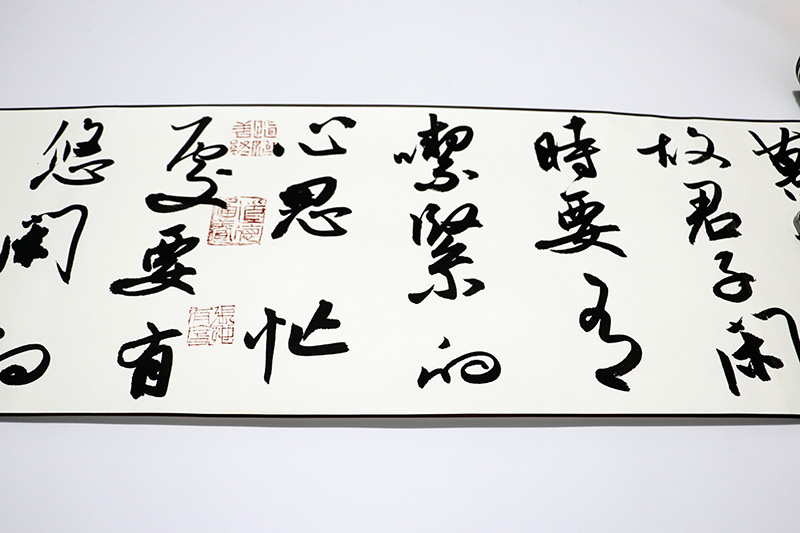 故君子閑
時要有
喫緊的
心思忙
處要有
悠閑的